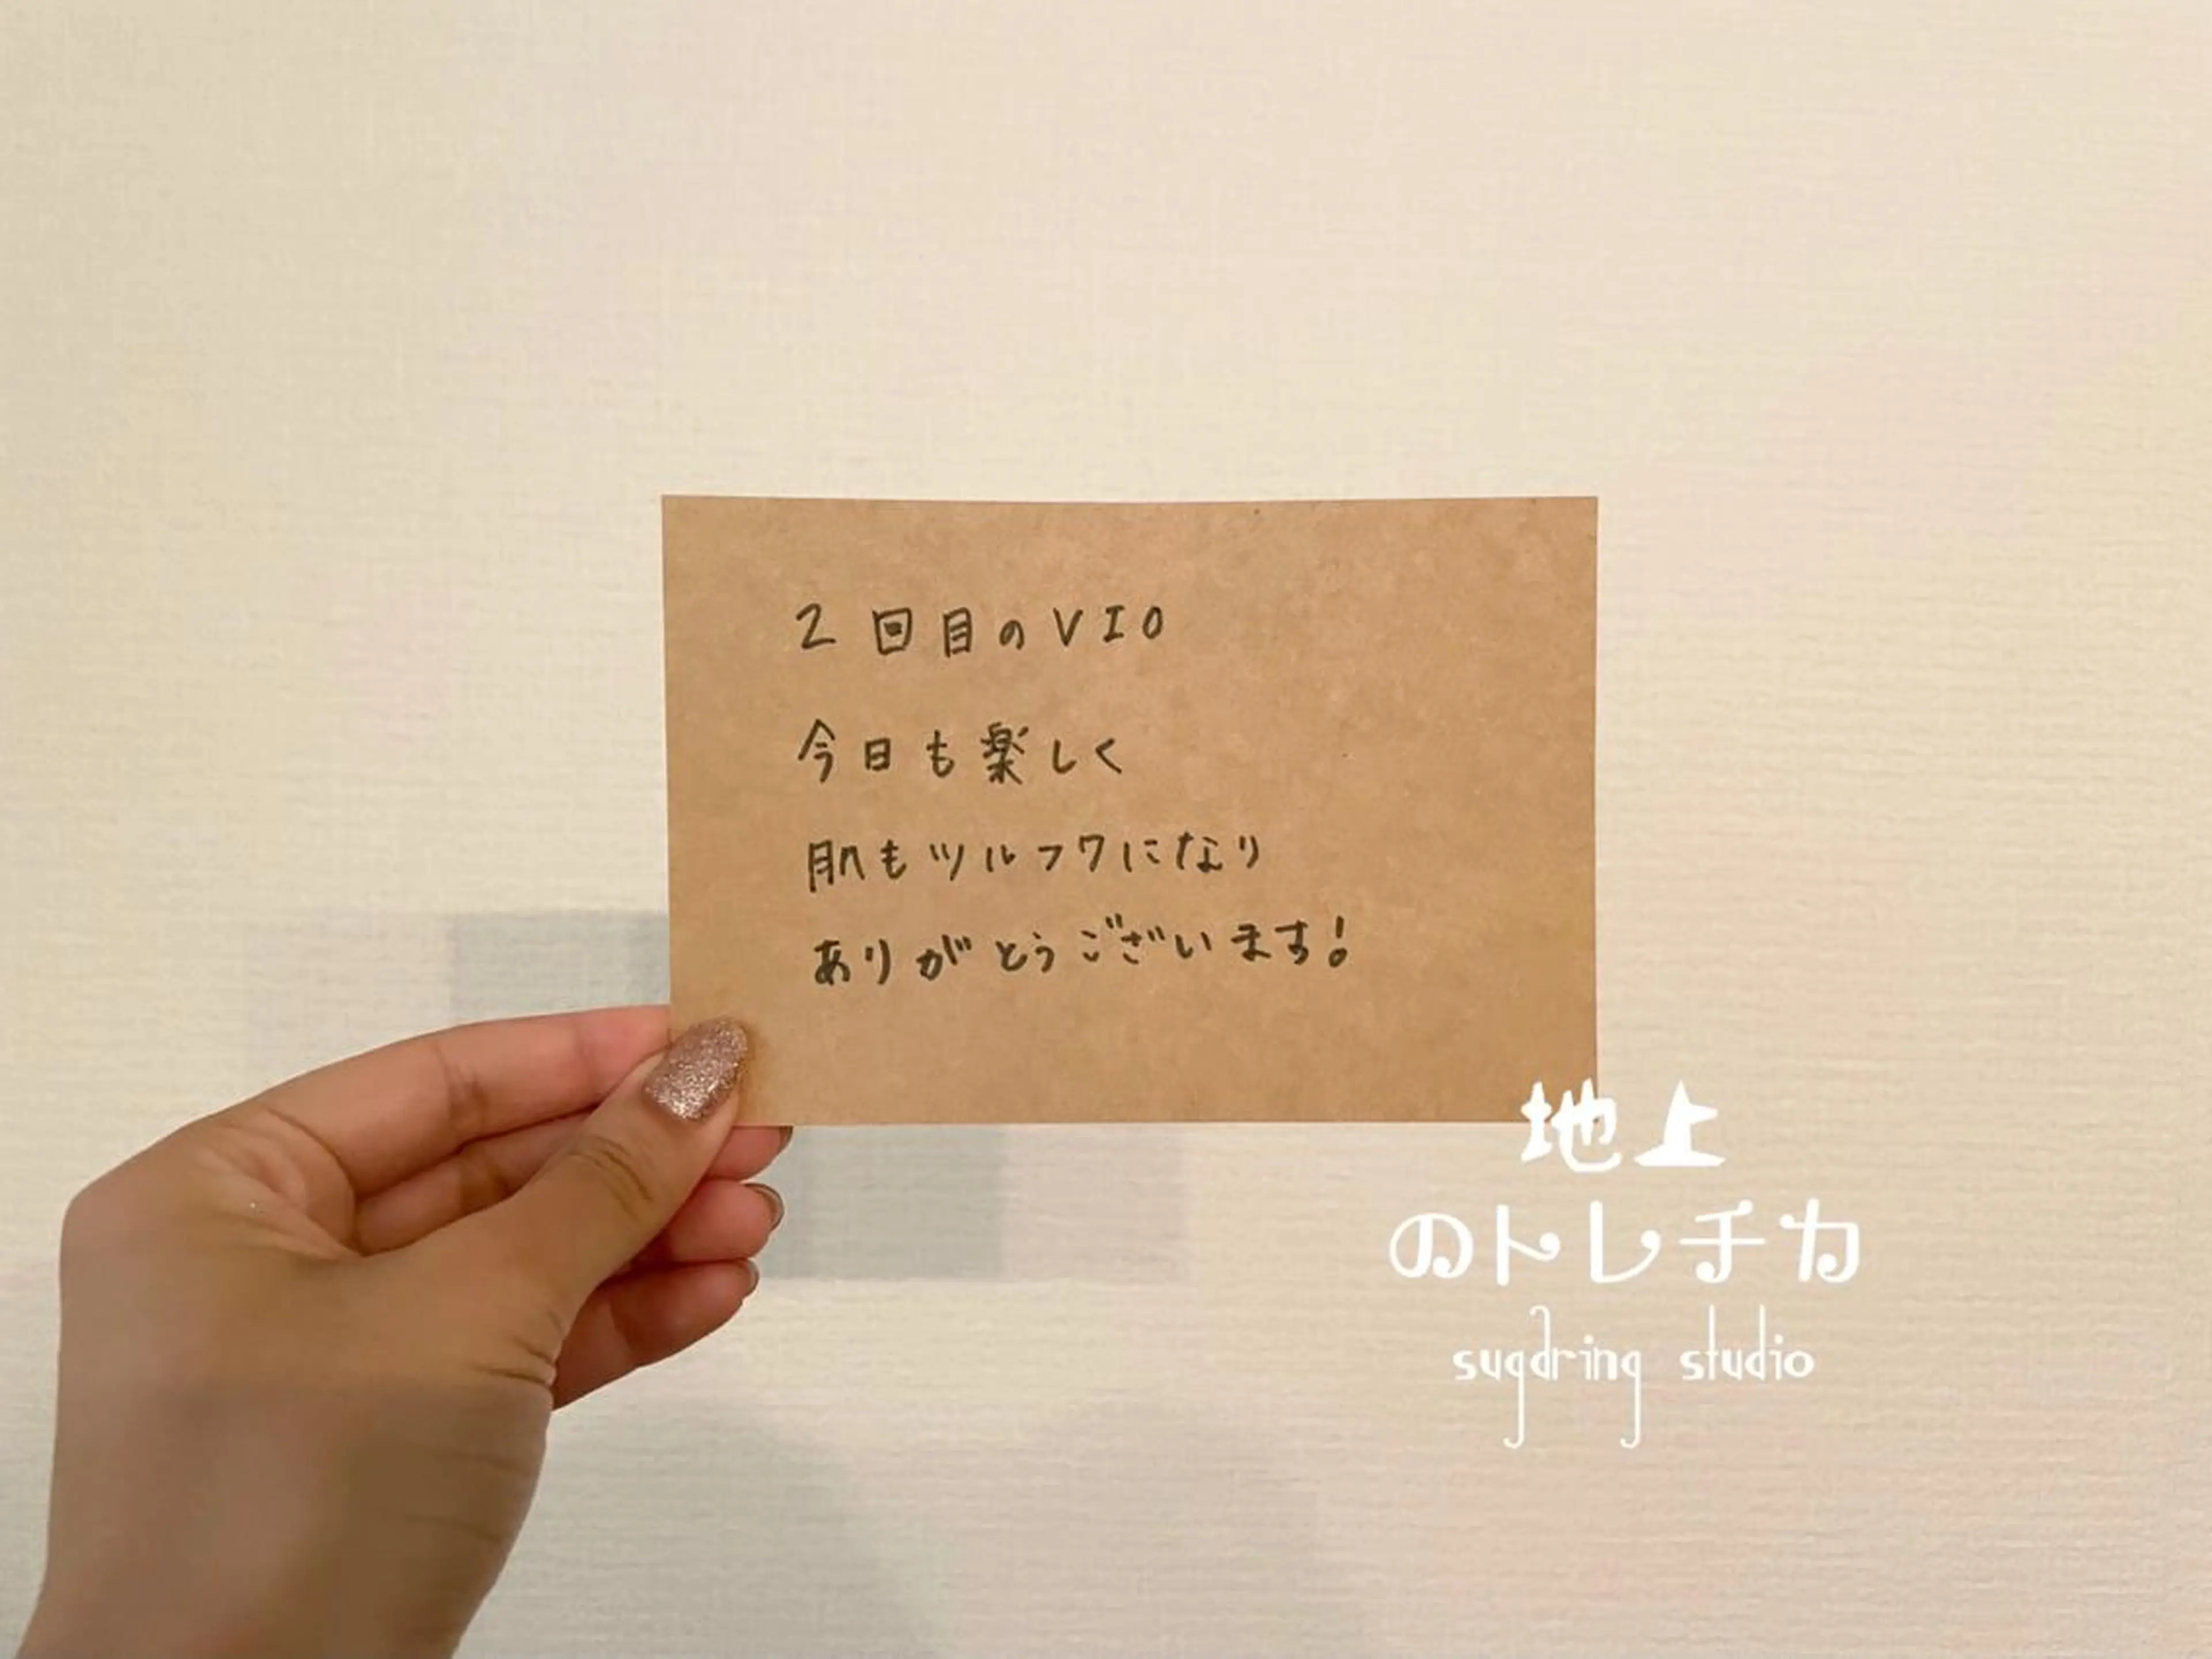 2回目のVIO
今日も楽しく
肌もツルフワになり
ありがとうございます!
地上
のトレチカ
sugaring studio